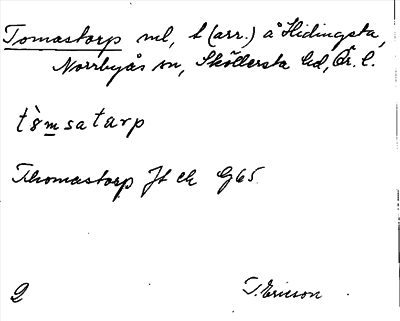 Tomastorp ml, t (arr.) å Hidingsta,
Norrbyås sn, Sköllersta hd, Ör. l.
Thomastorp Jb ck G65
T. Ericson